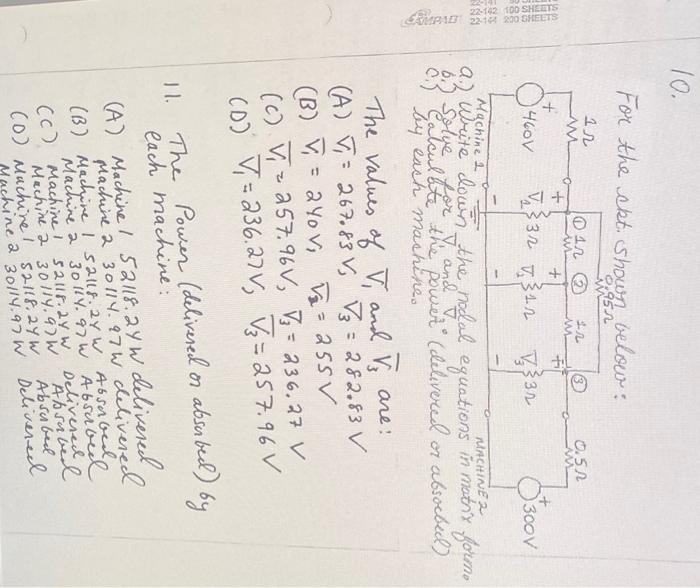 22-142 100 SHEETS
22-144 200 SHEETS
AMPAD
10.
For the ckt. shown below:
0.95Ω
1Ω ① 1Ω ② 1Ω ③ 0.5Ω
+ + + + +
460V V1 3Ω V2 1Ω V3 3Ω 300V
- - -
Machine 1 MACHINE 2
a.) Write down the nodal equations in matrix form.
b.) Solve for V̅1 and V̅3.
c.) Calculate the power (delivered or absorbed)
by each machine.
The values of V̅1 and V̅3 are:
(A) V̅1 = 267.83 V, V̅3 = 282.83 V
(B) V̅1 = 240V, V̅3 = 255 V
(C) V̅1 = 257.96V, V̅3 = 236.27 V
(D) V̅1 = 236.27V, V̅3 = 257.96 V
11. The Power (delivered or absorbed) by
each machine:
(A) Machine 1 52118.24 W delivered
Machine 2 30114.97 W delivered
(B) Machine 1 52118.24 W Absorbed
Machine 2 30114.97 W Absorbed
(C) Machine 1 52118.24 W Delivered
Machine 2 30114.97 W Absorbed
(D) Machine 1 52118.24 W Absorbed
Machine 2 30114.97 W Delivered